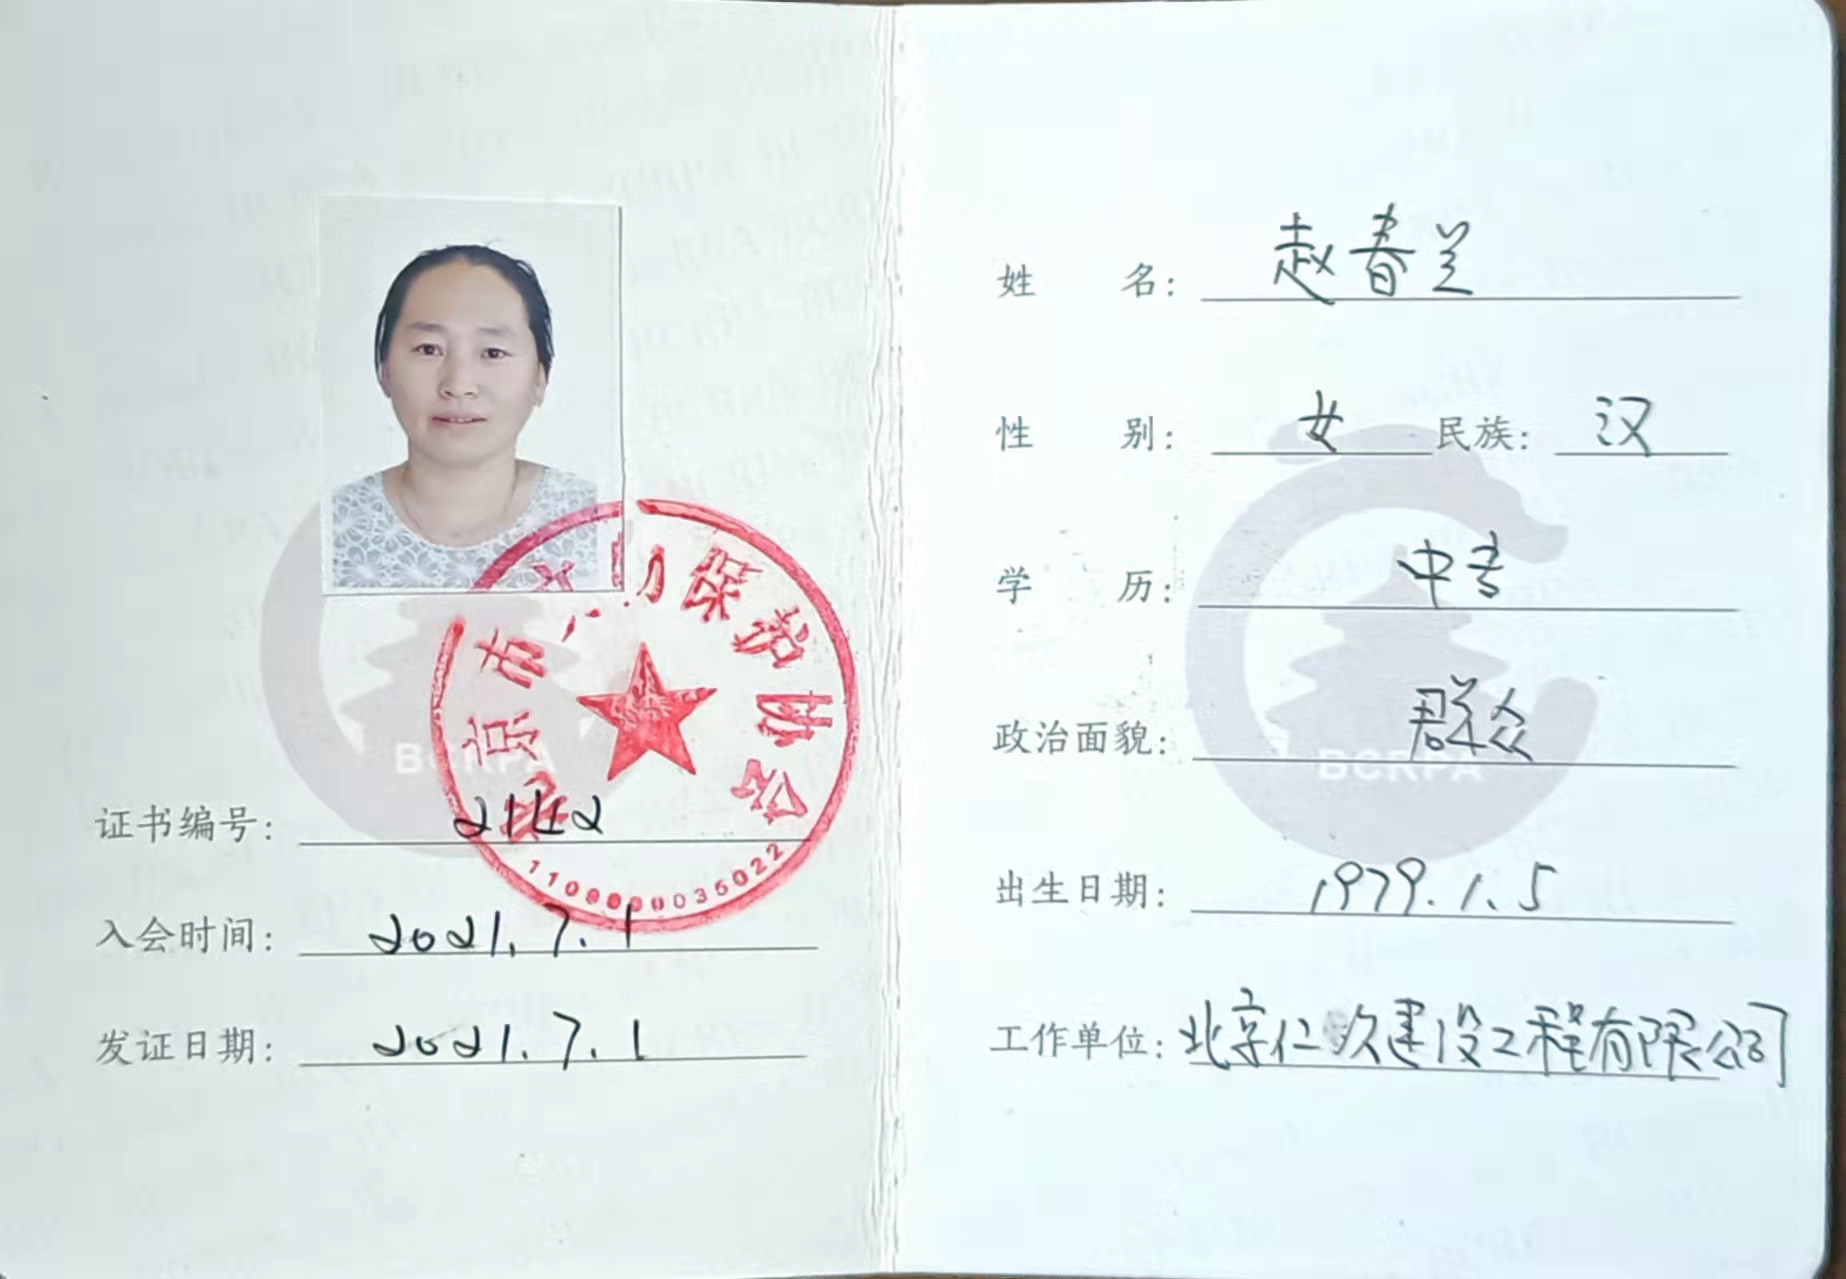 证书编号： 2142
入会时间： 2021.7.1
发证日期： 2021.7.1
北京市 保护协会
BCRPA
姓名： 赵春兰
性别： 女 民族： 汉
学历： 中专
政治面貌： 群众
BCRPA
出生日期： 1979.1.5
工作单位： 北京仁欢建设工程有限公司